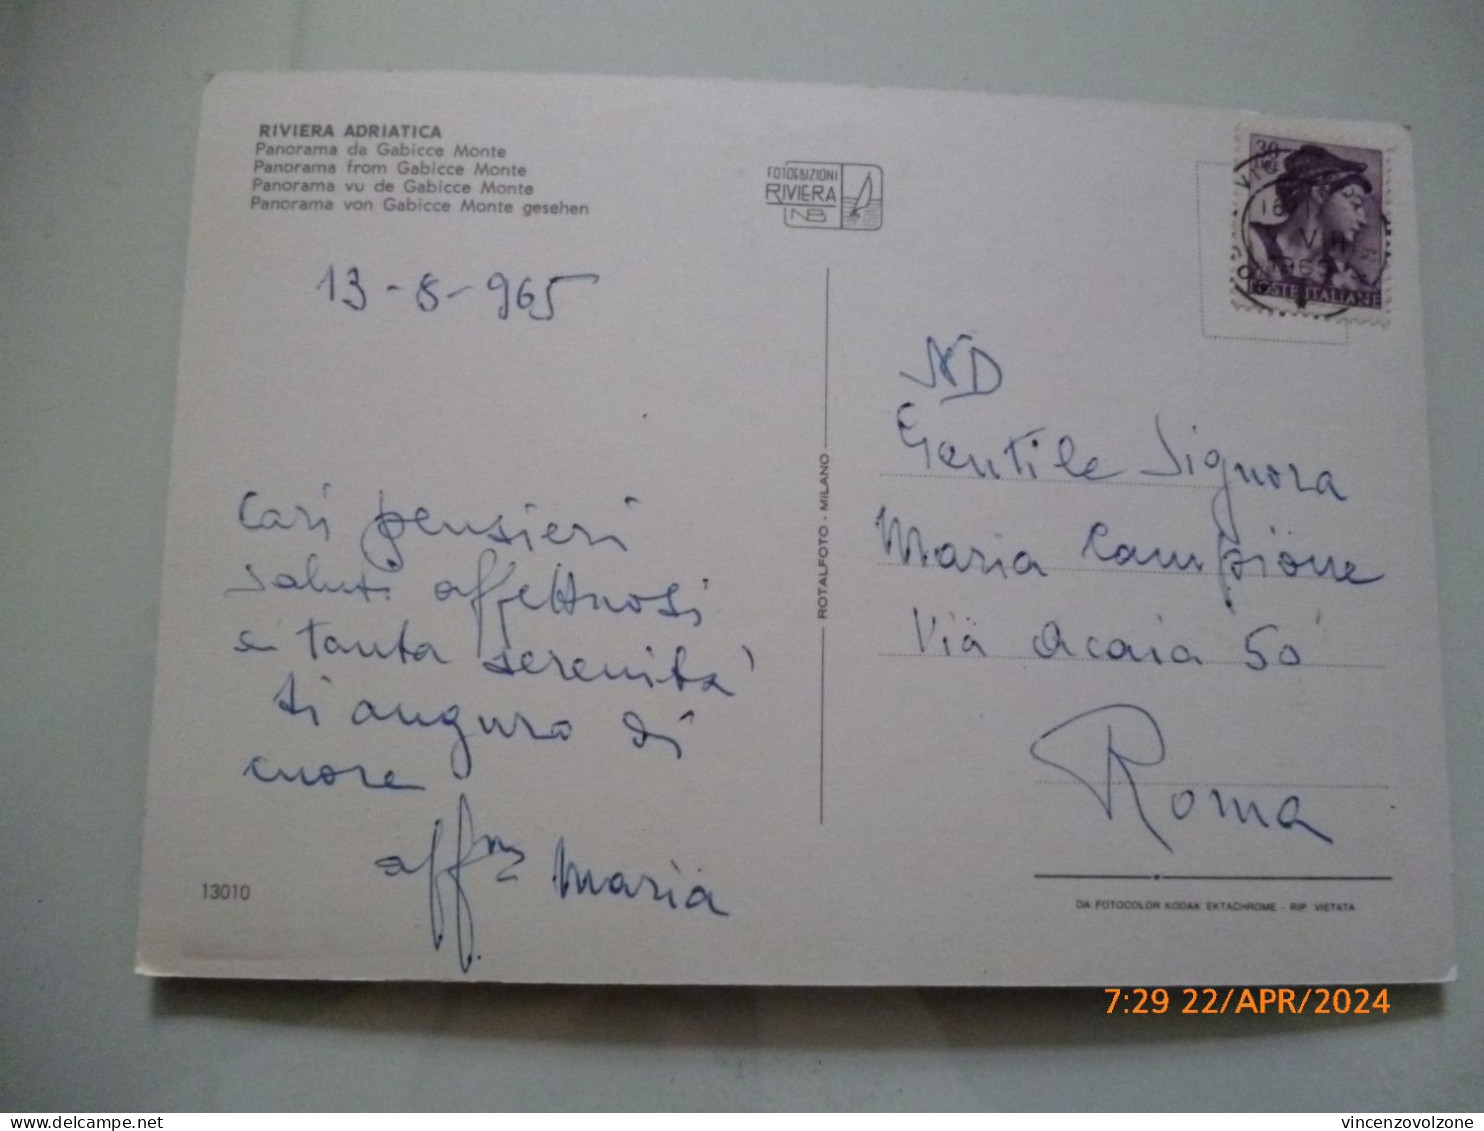 RIVIERA ADRIATICA
Panorama da Gabicce Monte
Panorama from Gabicce Monte
Panorama vu de Gabicce Monte
Panorama von Gabicce Monte gesehen
FOTOEDIZIONI
RIVIERA
NB
30
POSTE ITALIANE
13-8-965
Cari pensieri
saluti affettuosi
e tanta serenità
ti auguro di
cuore
aff.ma Maria
13010
ROTALFOTO - MILANO
ND
Gentile Signora
Maria Campione
Via Acaia 50
Roma
DA FOTOCOLOR KODAK EKTACHROME - RIP. VIETATA
7:29 22/APR/2024
vincenzovolzone